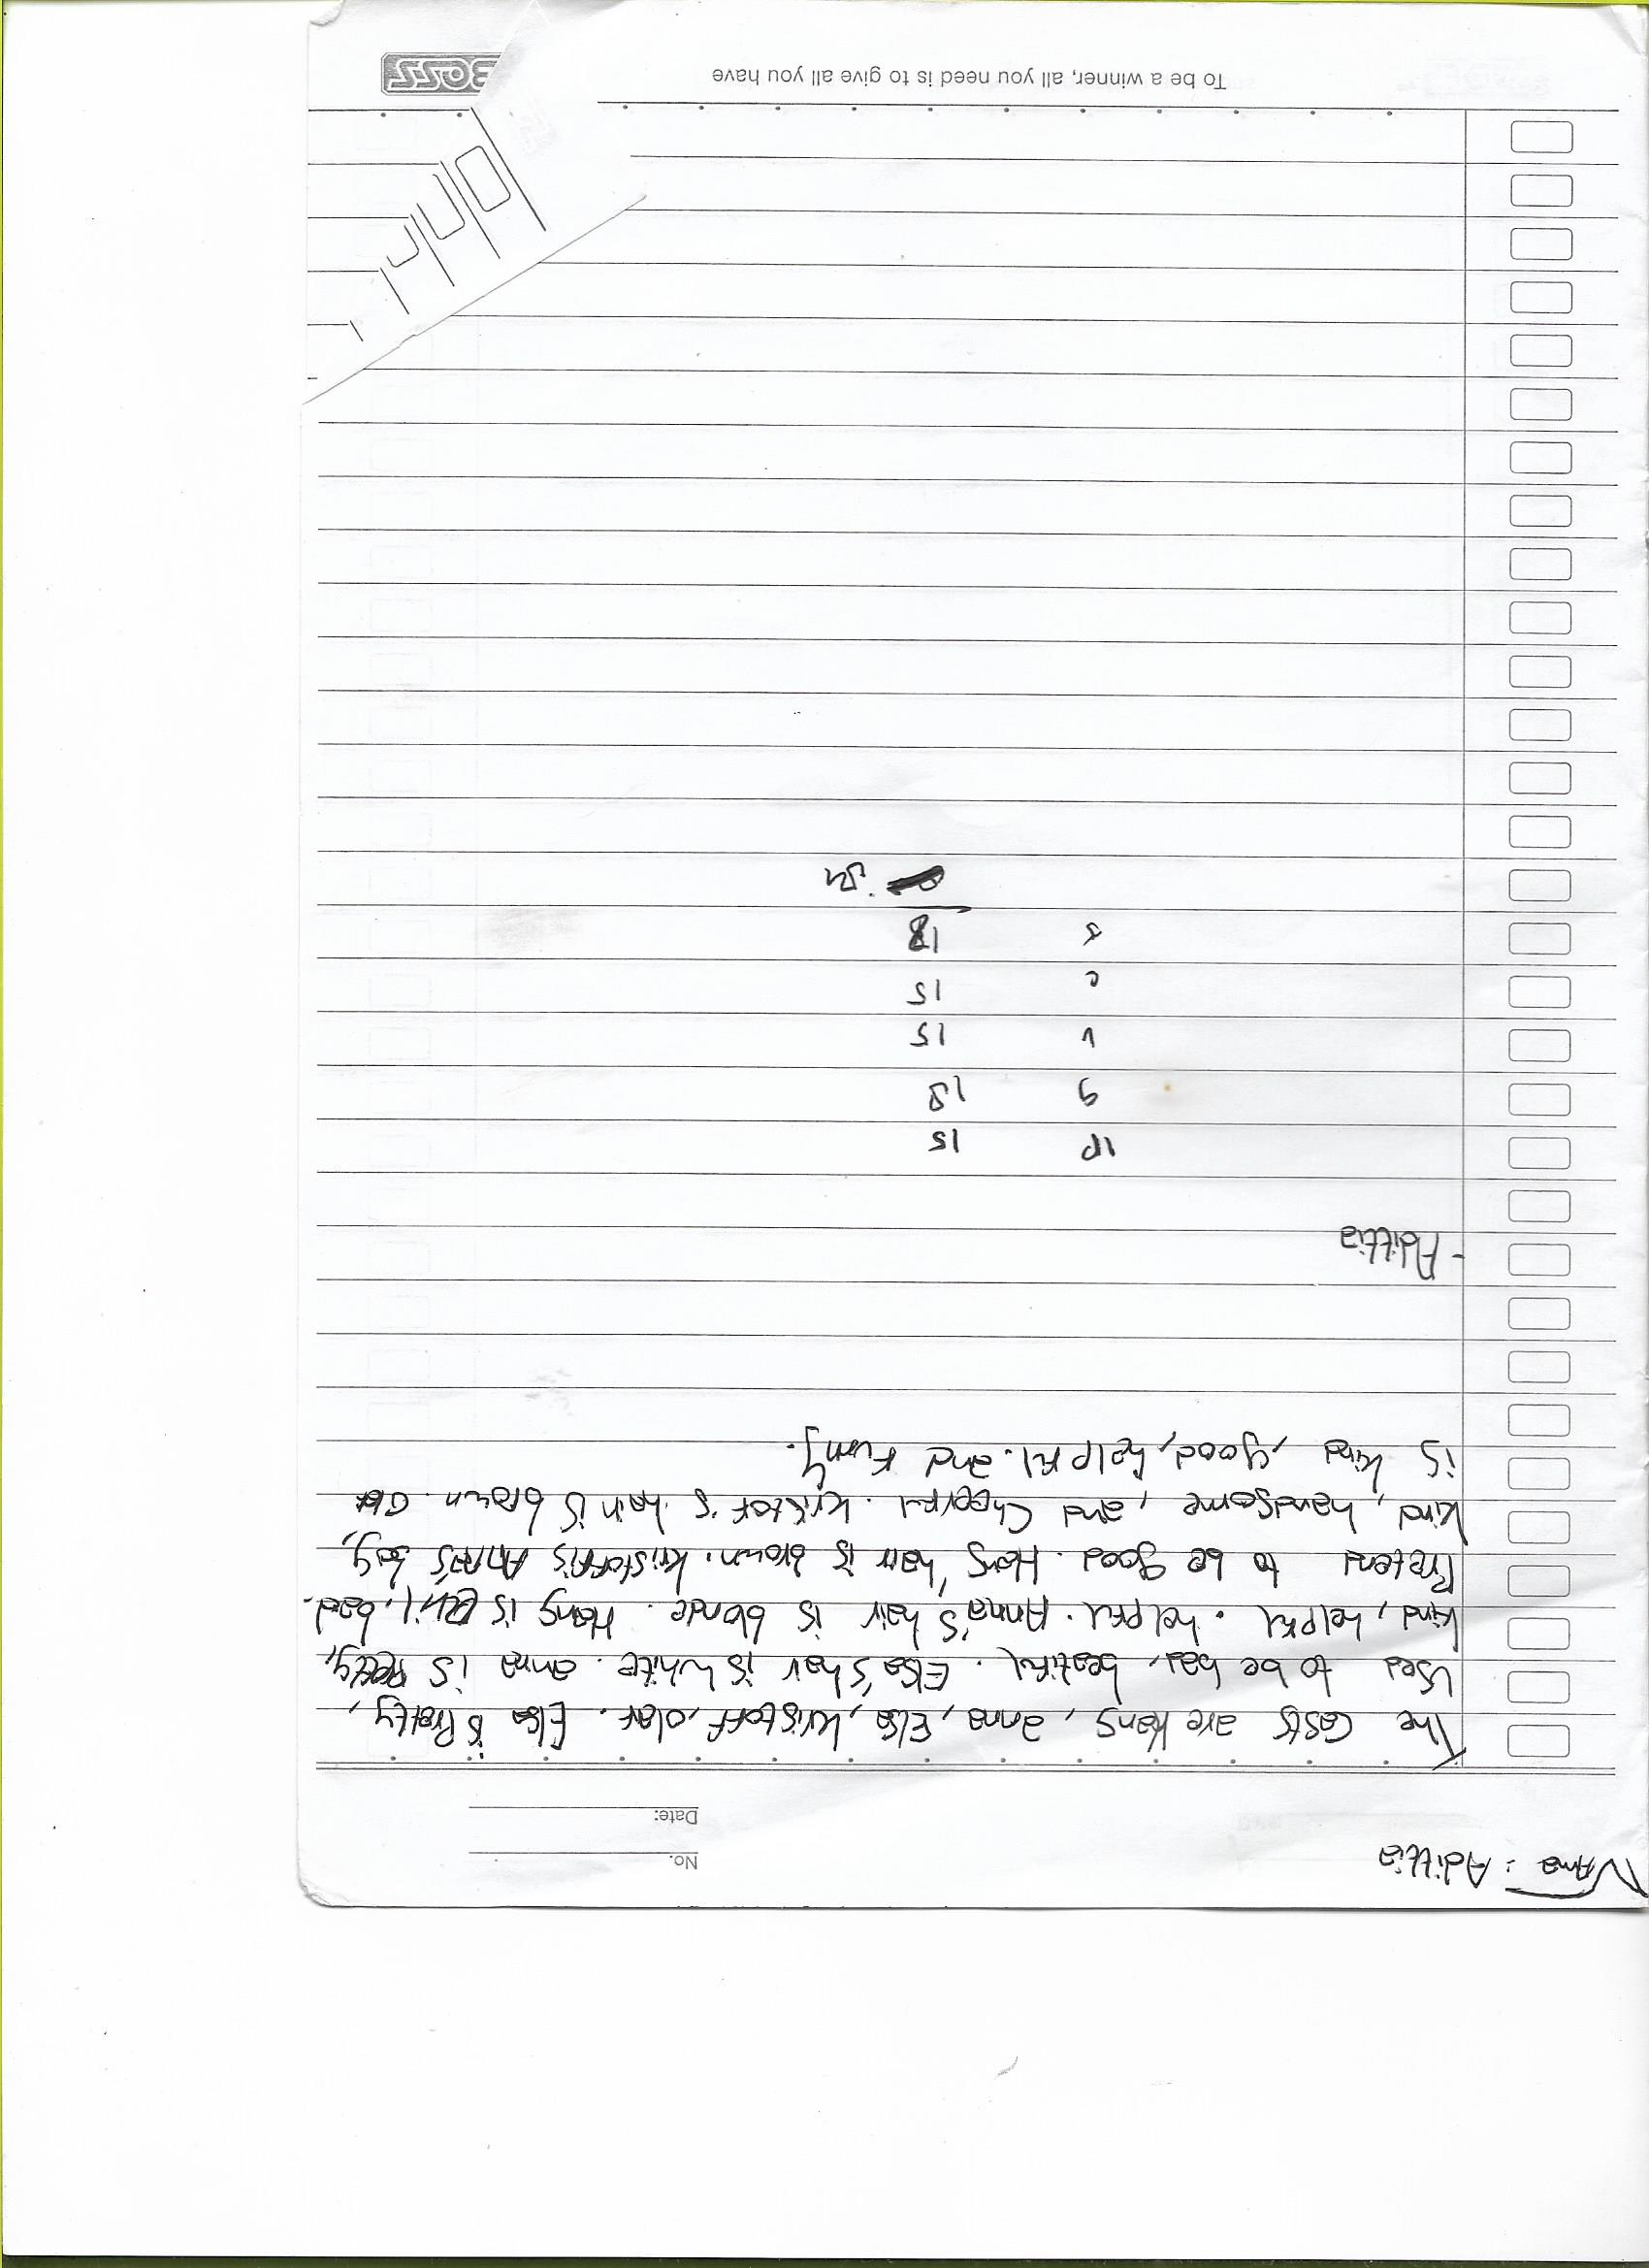 Nama : Adittia
No.
Date:
The casts are Hans, anna, Elsa, kristoff, olaf. Elsa is Pretty,
Used to be bad, beatiful. Elsa's hair is white. anna is Pretty,
kind, helpful. helpful. Anna's hair is blonde. Hans is Evil, bad.
Pretend to be good. Hans' hair is brown. kristoff is Anna's
kind, handsome, and cheerful. kristof's hair is brown.
is kind, good, helpful. and Funny.
- Adittia
15
g 18
v 15
c 15
18
To be a winner, all you need is to give all you have
BOSS